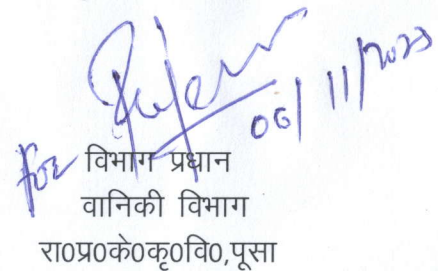 06/11/2023
for विभाग प्रधान
वानिकी विभाग
रा०प्र०के०कृ०वि०,पूसा